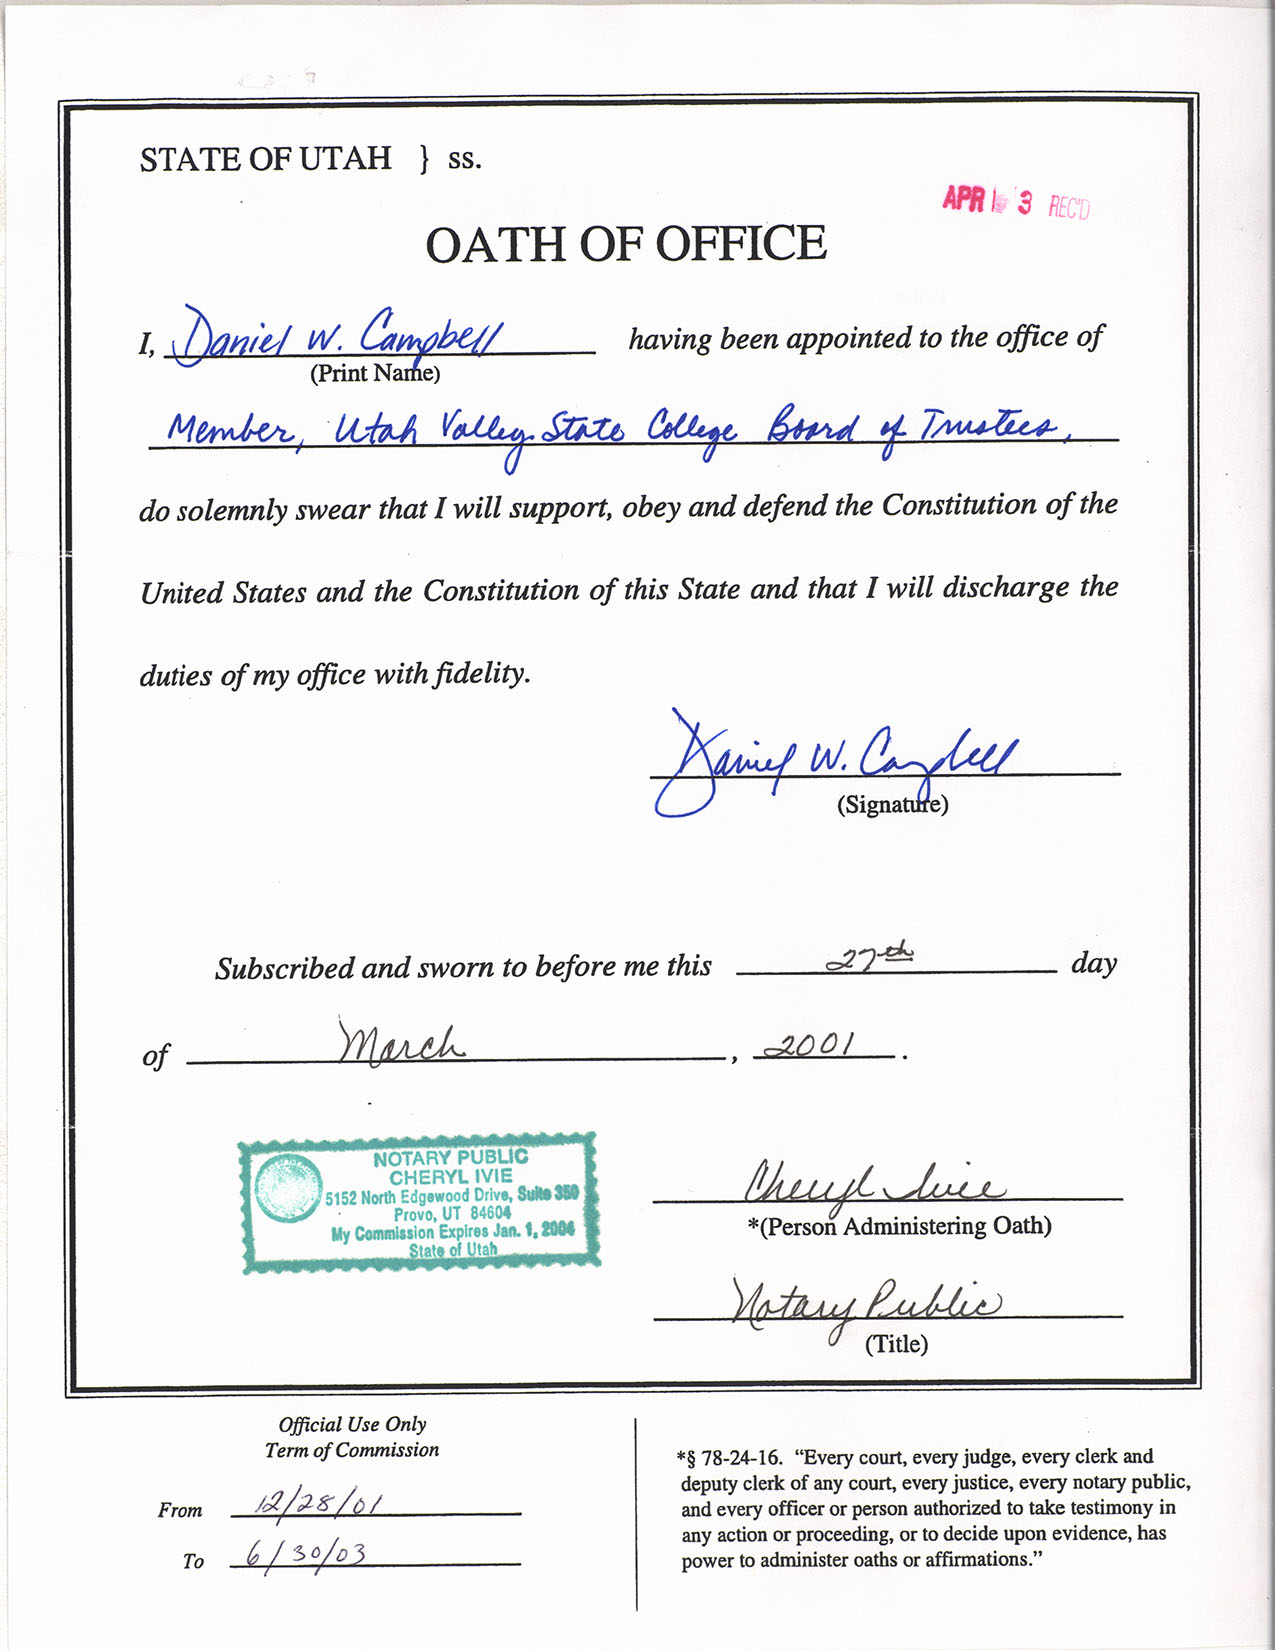 STATE OF UTAH } ss.
APR 3 REC'D
OATH OF OFFICE
I, Daniel W. Campbell having been appointed to the office of
(Print Name)
Member, Utah Valley State College Board of Trustees,
do solemnly swear that I will support, obey and defend the Constitution of the
United States and the Constitution of this State and that I will discharge the
duties of my office with fidelity.
Daniel W. Campbell
(Signature)
Subscribed and sworn to before me this 27th day
of March, 2001.
NOTARY PUBLIC
CHERYL IVIE
5152 North Edgewood Drive, Suite 350
Provo, UT 84604
My Commission Expires Jan. 1, 2004
State of Utah
Cheryl Ivie
*(Person Administering Oath)
Notary Public
(Title)
Official Use Only
Term of Commission
From 12/28/01
To 6/30/03
*§ 78-24-16. “Every court, every judge, every clerk and
deputy clerk of any court, every justice, every notary public,
and every officer or person authorized to take testimony in
any action or proceeding, or to decide upon evidence, has
power to administer oaths or affirmations.”